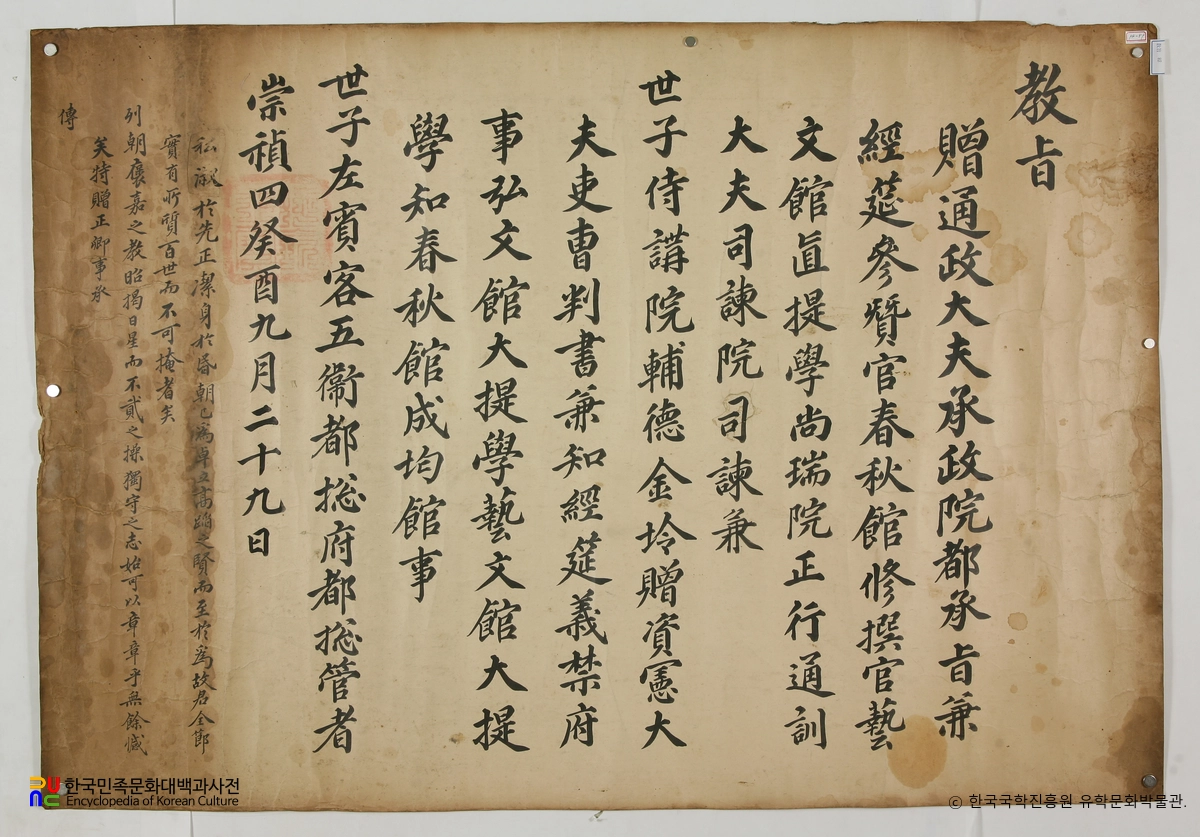 教旨
贈通政大夫承政院都承旨兼
經筵參贊官春秋館修撰官藝
文館直提學尙瑞院正行通訓
大夫司諫院司諫兼
世子侍講院輔德金坽贈資憲大
夫吏曹判書兼知經筵義禁府
事弘文館大提學藝文館大提
學知春秋館成均館事
世子左賓客五衛都摠府都摠管者
崇禎四癸酉九月二十九日
私淑於先正潔身於昏朝已爲卓立高蹈之賢而至於爲故君全節
實有所質百世而不可掩者矣
列朝褒嘉之敎昭揭日星而不貳之操獨守之志始可以章章乎無餘憾
矣特贈正卿事承
傳
한국민족문화대백과사전
Encyclopedia of Korean Culture
ⓒ 한국국학진흥원 유학문화박물관.